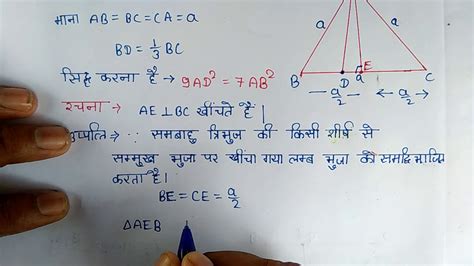 माना AB = BC = CA = a
BD = 1/3 BC
सिद्ध करना है → 9AD² = 7AB²
रचना → AE ⊥ BC खींचते हैं |
उपपत्ति → ∵ समबाहु त्रिभुज की किसी शीर्ष से
सम्मुख भुजा पर खींचा गया लम्ब भुजा को समद्विभाजित
करता है |
BE = CE = a/2
ΔAEB
a a
B D a E C
a/2 a/2